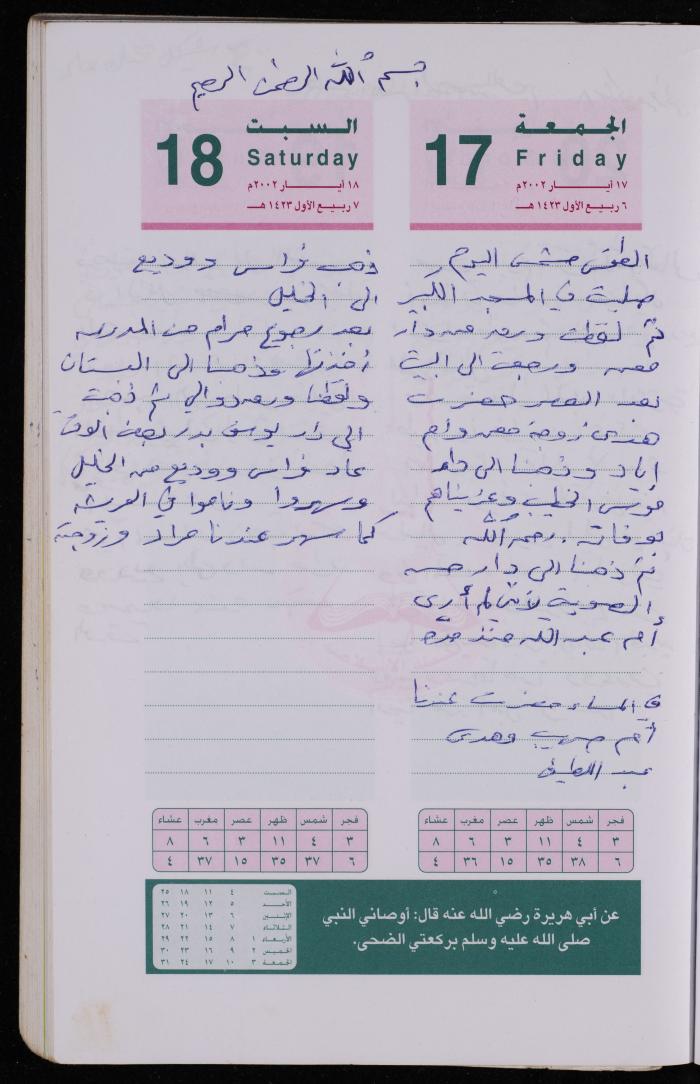 بسم الله الرحمن الرحيم
الجمعة
17
Friday
١٧ أيـــار ٢٠٠٢م
٦ ربيع الأول ١٤٢٣ هـ
الطقس مشمس اليوم و
صليت في المسجد الكبير
ثم لقطت ورق من دار
ورجعت الى البيت
بعد العصر حضرت
هدى زوجة معن وأم
اياد وذهبنا الى دار
الخطيب وعزيناهم
بوفاته. رحمه الله
ثم ذهبنا الى دار
لأني لم أرى
أم عبد الله منذ مدة
في المساء حضرت عندنا
أم صهيب وهدى
عبد اللطيف
السبت
18
Saturday
١٨ أيـــار ٢٠٠٢م
٧ ربيع الأول ١٤٢٣ هـ
ذهب فراس ووديع
الى الخليل
بعد رجوع مرام من المدرسة
أخذتها وذهبنا الى البستان
ولقطنا ورق دوالي ثم ذهبت
الى دار يوسف بدر لبعض الوقت
عاد فراس ووديع من الخليل
وسهروا وناموا في العريشة
كما سهر عندنا مراد وزوجته
فجر شمس ظهر عصر مغرب عشاء
٣ ٤ ١١ ٣ ٦ ٨
٦ ٣٨ ٣٥ ١٥ ٣٦ ٤
فجر شمس ظهر عصر مغرب عشاء
٣ ٤ ١١ ٣ ٦ ٨
٦ ٣٧ ٣٥ ١٥ ٣٧ ٤
عن أبي هريرة رضي الله عنه قال: أوصاني النبي
صلى الله عليه وسلم بركعتي الضحى.
السبت ٤ ١١ ١٨ ٢٥
الأحد ٥ ١٢ ١٩ ٢٦
الإثنين ٦ ١٣ ٢٠ ٢٧
الثلاثاء ٧ ١٤ ٢١ ٢٨
الأربعاء ١ ٨ ١٥ ٢٢ ٢٩
الخميس ٢ ٩ ١٦ ٢٣ ٣٠
الجمعة ٣ ١٠ ١٧ ٢٤ ٣١